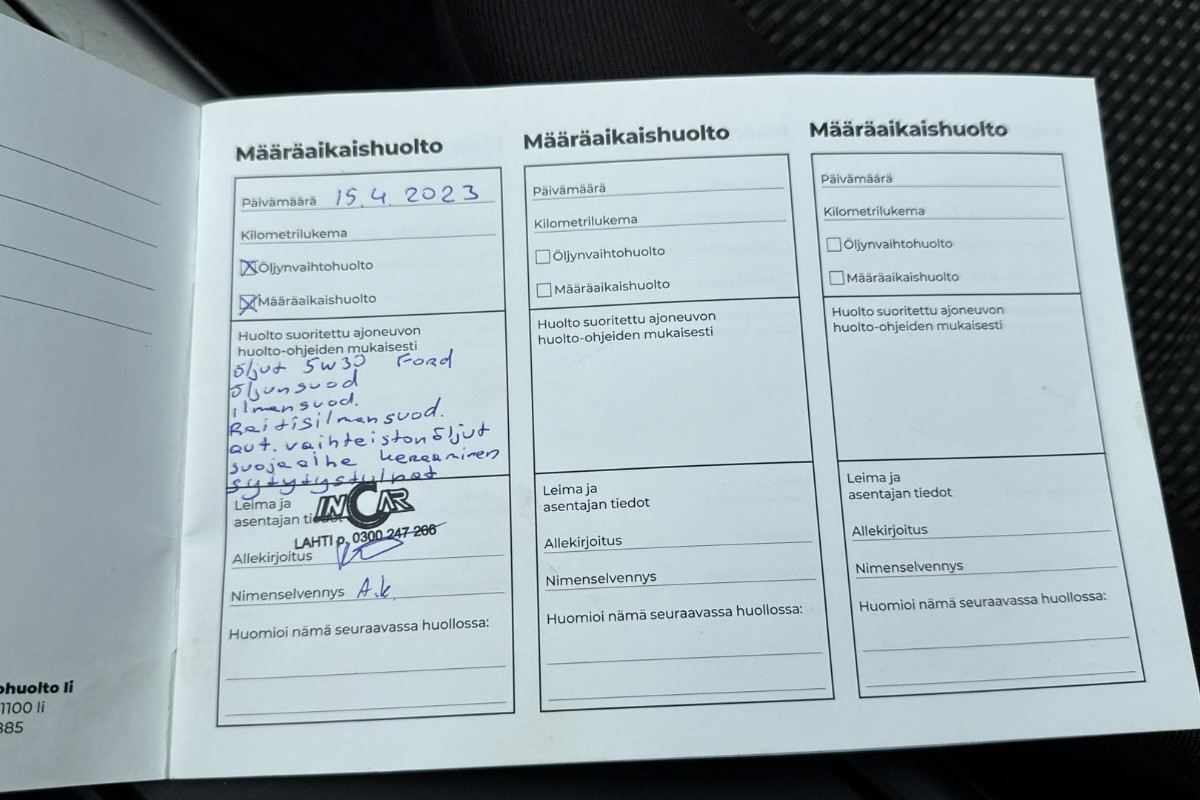 Määräaikaishuolto
Päivämäärä 15.4.2023
Kilometrilukema
Öljynvaihtohuolto
Määräaikaishuolto
Huolto suoritettu ajoneuvon
huolto-ohjeiden mukaisesti
öljyt 5W30 Ford
öljynsuod
ilmansuod.
Raitisilmansuod.
aut. vaihteistonöljyt
suojaaihe keraaminen
sytytystulpat
Leima ja
asentajan tiedot
INCAR
LAHTI p. 0300 247 266
Allekirjoitus
Nimenselvennys A.k
Huomioi nämä seuraavassa huollossa:
Määräaikaishuolto
Päivämäärä
Kilometrilukema
Öljynvaihtohuolto
Määräaikaishuolto
Huolto suoritettu ajoneuvon
huolto-ohjeiden mukaisesti
Leima ja
asentajan tiedot
Allekirjoitus
Nimenselvennys
Huomioi nämä seuraavassa huollossa:
Määräaikaishuolto
Päivämäärä
Kilometrilukema
Öljynvaihtohuolto
Määräaikaishuolto
Huolto suoritettu ajoneuvon
huolto-ohjeiden mukaisesti
Leima ja
asentajan tiedot
Allekirjoitus
Nimenselvennys
Huomioi nämä seuraavassa huollossa:
ohuolto Ii
1100 Ii
885